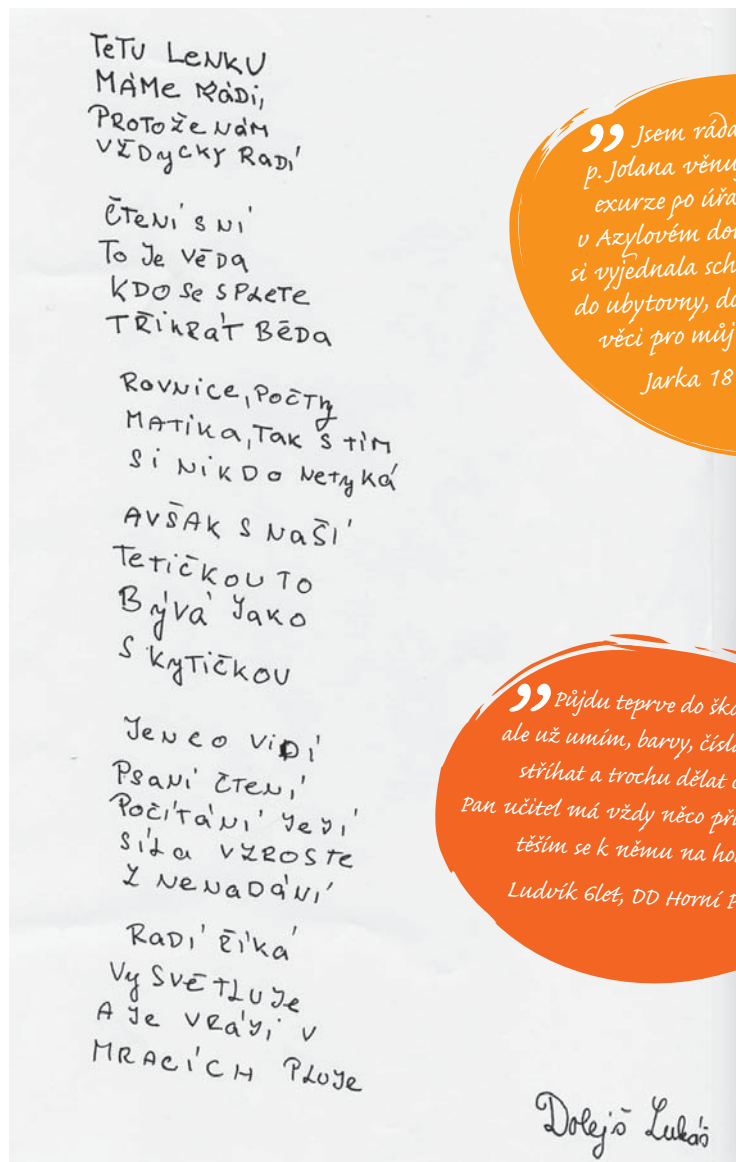 TeTU LeNKU
MÁMe RáDi,
PRoTože NáM
VžDyCKy RaDí
ČTeNí S Ní
To Je VěDa
KDO Se SPLeTe
TŘiKRáT BěDa
RoVNice, PoČTy
MaTiKa, Tak S tíM
Si NiKDo NeTyKá
AVŠAK S NaŠí
TeTiČKoU To
BýVá JaKo
S KyTiČKoU
JeN Co ViDí
PSaNí ČTeNí
PoČíTáNí JeJí
SíLa VZRoSTe
Z NeNaDáNí
RaDí Říká
VySVěTLuJe
A Je VRáJi V
MRaCíCH PLuJe
Dolejš Lukáš
„ Jsem ráda
p. Jolana věnu
exurze po úřa
v Azylovém do
si vyjednala sch
do ubytovny, do
věci pro můj
Jarka 18
„ Půjdu teprve do ško
ale už umím, barvy, čísla
stříhat a trochu dělat
Pan učitel má vždy něco při
těším se k němu na ho
Ludvík 6let, DD Horní P